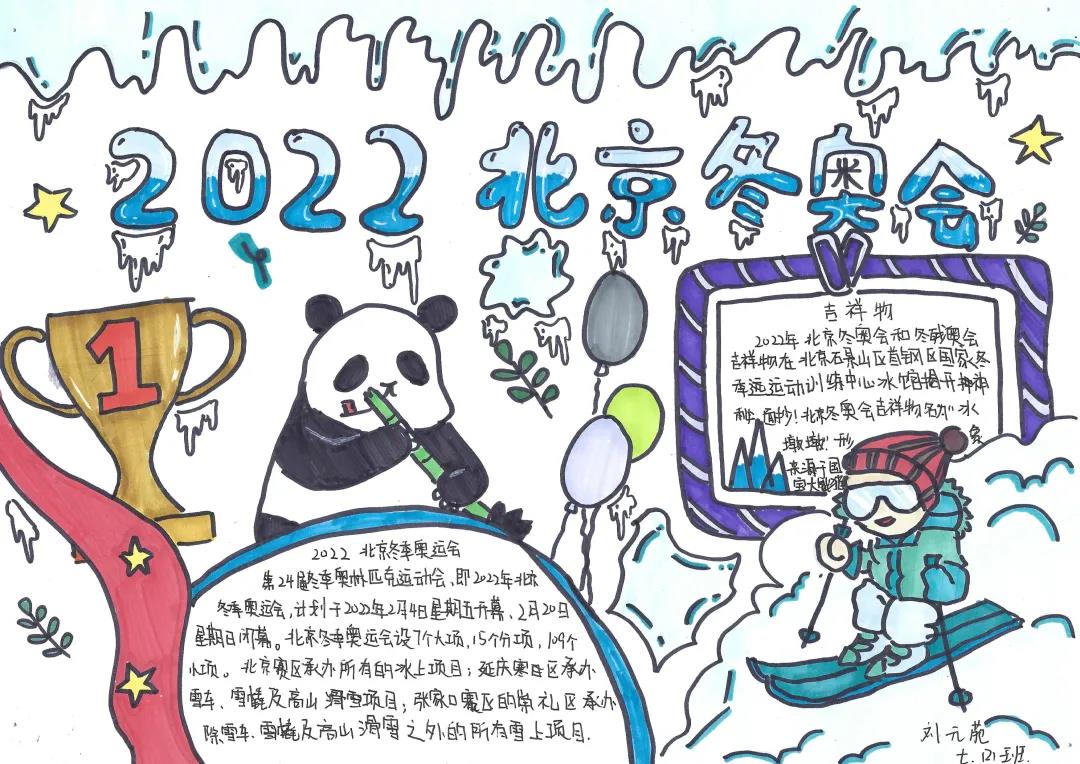 2022 北京冬奥会
1
吉祥物
2022年北京冬奥会和冬残奥会
吉祥物在北京石景山区首钢园区国家冬
季运动训练中心冰馆揭开神
秘面纱!北京冬奥会吉祥物名为"冰
墩墩"形象
来源于国
宝大熊猫
2022 北京冬季奥运会
第24届冬季奥林匹克运动会,即2022年北京
冬季奥运会,计划于2022年2月4日星期五开幕、2月20日
星期日闭幕。北京冬季奥运会设7个大项,15个分项,109个
小项。北京赛区承办所有的冰上项目;延庆赛区承办
雪车、雪橇及高山滑雪项目;张家口赛区的崇礼区承办
除雪车、雪橇及高山滑雪之外的所有雪上项目.
刘元苑
七.四班.